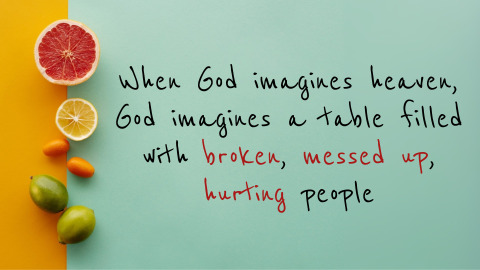 When God imagines heaven,
God imagines a table filled
with broken, messed up,
hurting people